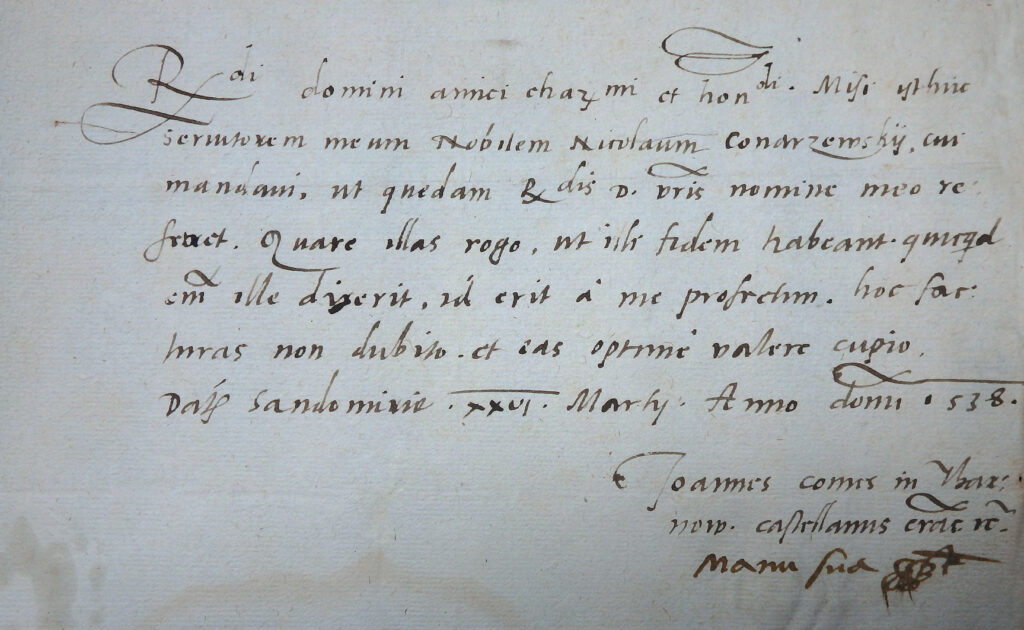 Rdi domini amici charmi et hondi. Misi isthuc
servitorem meum Nobilem Nicolaum Conarzewskij, cui
mandavi, ut quedam Rdis D. vris nomine meo re
ferret. Quare illas rogo, ut illi fidem habeant. quicqd
em ille dixerit, id erit à me profectum. hoc fac
turas non dubito. et eas optime valere cupio.
Dat Sandomirie .xxvi. Martij. Anno domi .538.
Joannes comes in Thar:
now. castellanus crac
Manu sua